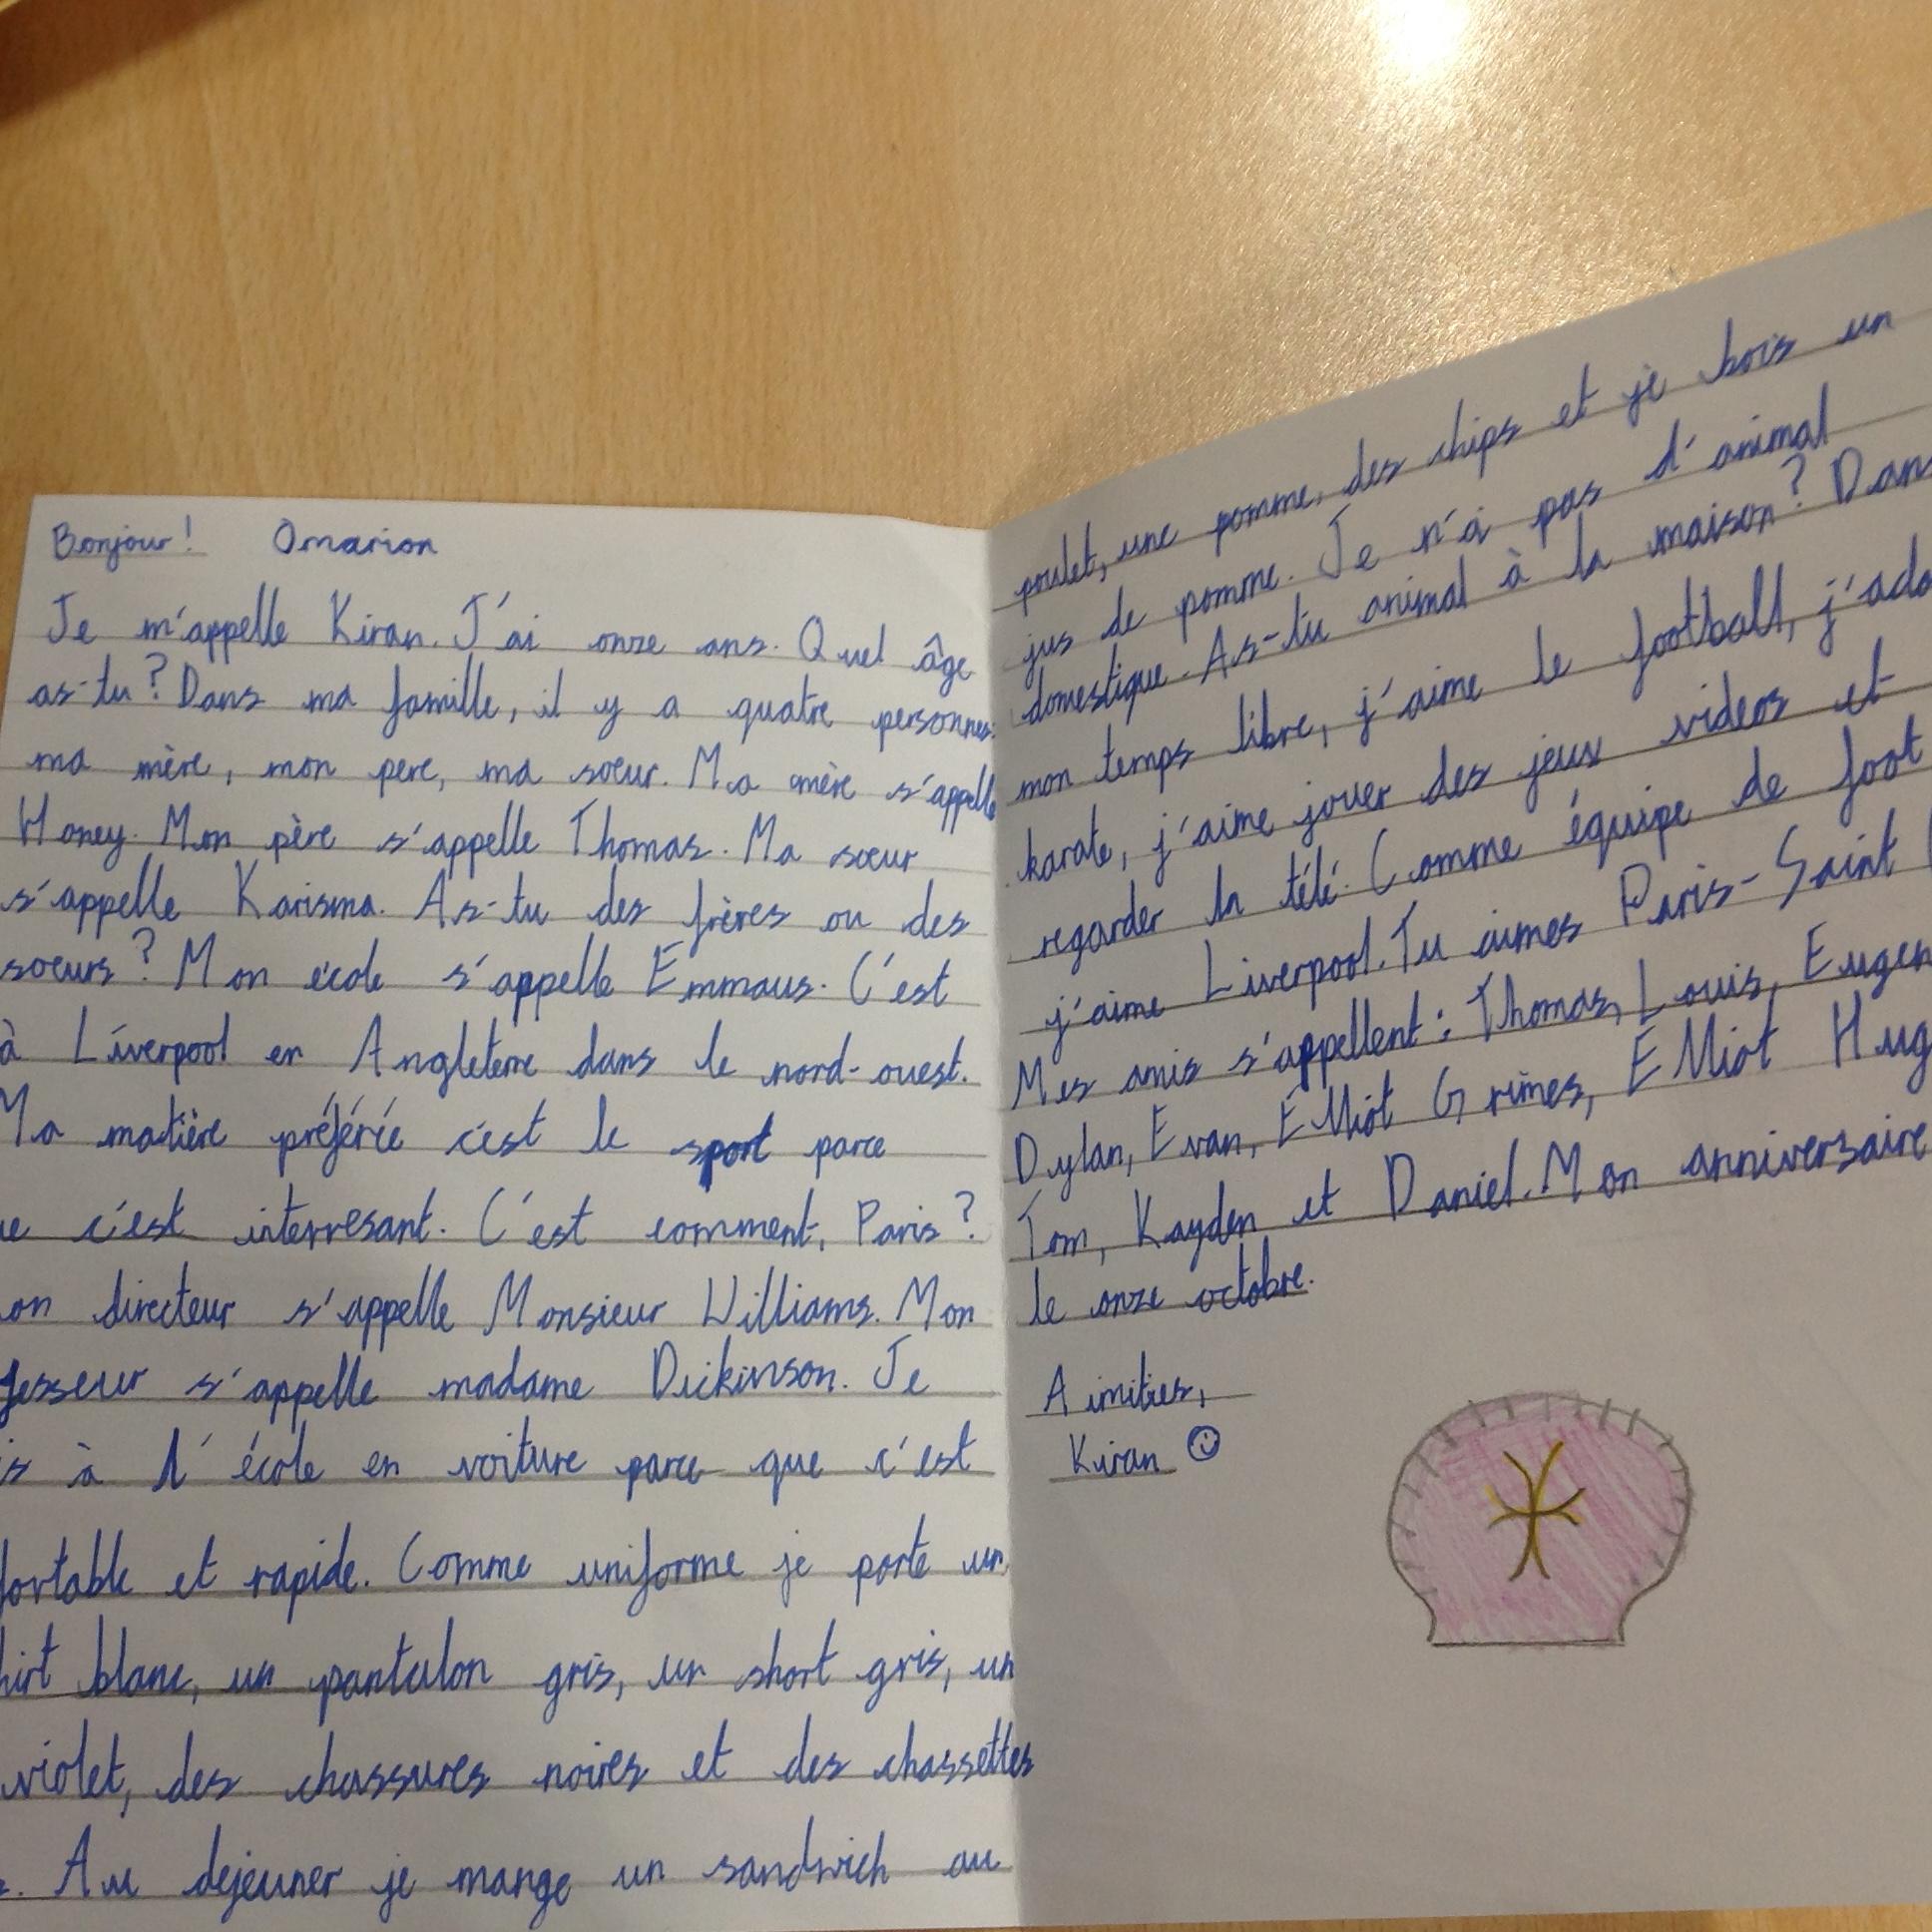 Bonjour! Omarion
Je m'appelle Kiran. J'ai onze ans. Quel âge
as-tu? Dans ma famille, il y a quatre personnes:
ma mère, mon pere, ma soeur. Ma mère s'appelle
Honey. Mon père s'appelle Thomas. Ma sœur
s'appelle Karisma. As-tu des frères ou des
soeurs? Mon école s'appelle Emmaus. C'est
à Liverpool en Angleterre dans le nord-ouest.
Ma matière préférée c'est le sport parce
c'est interresant. C'est comment, Paris?
directeur s'appelle Monsieur Williams. Mon
s'appelle madame Dickinson. Je
à l'école en voiture parce que c'est
et rapide. Comme uniforme je porte un
blanc, un pantalon gris, un short gris, un
violet, des chassures noires et des chassettes
Au dejeuner je mange un sandwich au
poulet, une pomme, des chips et je bois un
jus de pomme. Je n'a pas d'animal
domestique. As-tu animal à la maison? Dans
mon temps libre, j'aime le football,
karate, j'aime jouer des jeux videos et
regarder la télé. Comme équipe de foot
j'aime Liverpool. Tu aimes Paris-Saint
Mes amis s'appellent: Thomas, Louis,
Dylan, Evan, Elliot Grimes, Elliot
Tom, Kayden et Daniel. Mon anniversaire
le onze octobre.
Aimities,
Kiran